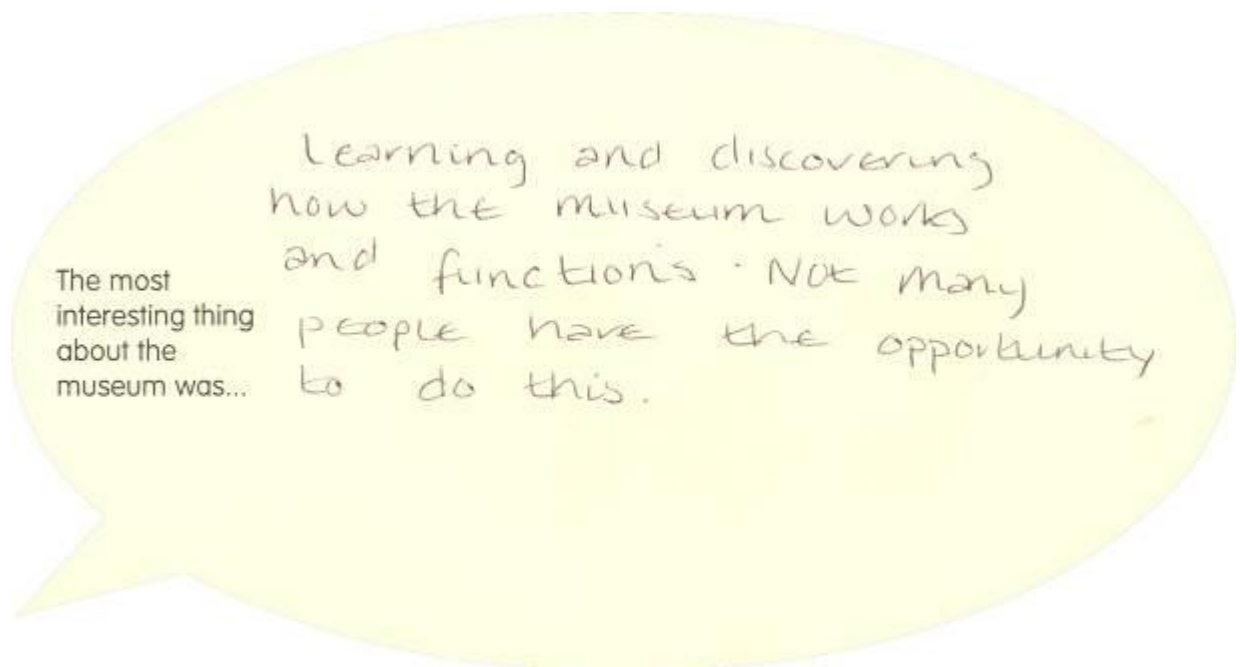 The most
interesting thing
about the
museum was...
Learning and discovering
how the museum works
and functions. Not many
people have the opportunity
to do this.